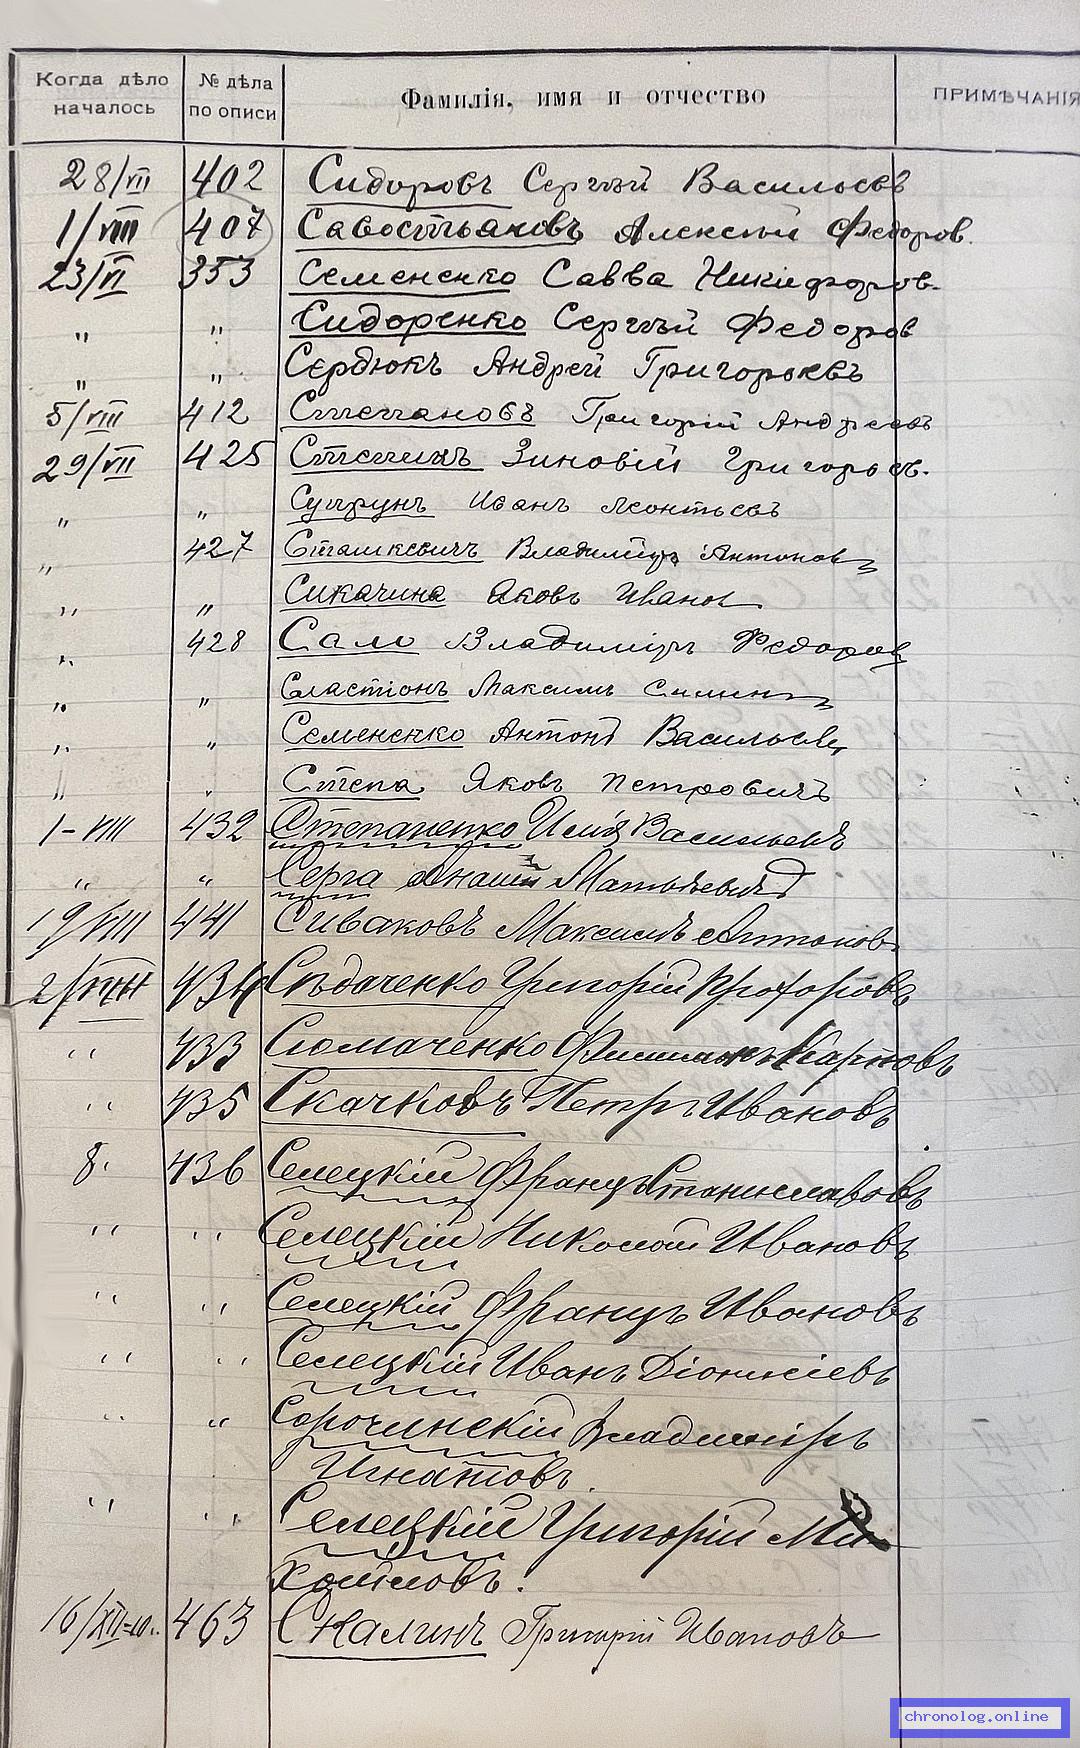 Когда дѣло началось № дѣла по описи Фамилія, имя и отчество ПРИМѢЧАНІЯ
28/VII 402 Сидоровъ Сергѣй Васильевъ
1/VIII 407 Савостьяновъ Алексѣй Федоров.
23/VI 353 Семененко Савва Никифоров.
" " Сидоренко Сергѣй Федоров
" " Сердюкъ Андрей Григорьевъ
5/VIII 412 Степановъ Григорій Андреевъ
29/VII 425 Степинъ Зиновій Григорьев.
" " Супрунъ Иванъ Леонтьевъ
" 427 Сташкевичъ Владиміръ Антонов
" " Сикачина Яковъ Иванов
" 428 Сало Владиміръ Федоров
" " Сластіонъ Максимъ
" " Семененко Антонъ Васильев
" " Степа Яковъ Петровичъ
1-VIII 432 Степаненко Илія Васильевъ
" " Серга Матвѣевичъ
19/VIII 441 Сиваковъ Максимъ Антонов
2/VIII 434 Сѣдаченко Григорій Прохоровъ
" 433 Сюмаченко Филимонъ Карповъ
" 435 Скачковъ Петръ Ивановъ
8. 436 Селецкій Францъ Станиславовъ
" " Селецкій Николай Ивановъ
" " Селецкій Францъ Ивановъ
" " Селецкій Иванъ Діонисіевъ
" " Сорочинскій Владиміръ
Игнатовъ.
" " Селецкій Григорій Ми
хайловъ.
16/XII 463 Скалинъ Григорій Ивановъ
chronolog.online